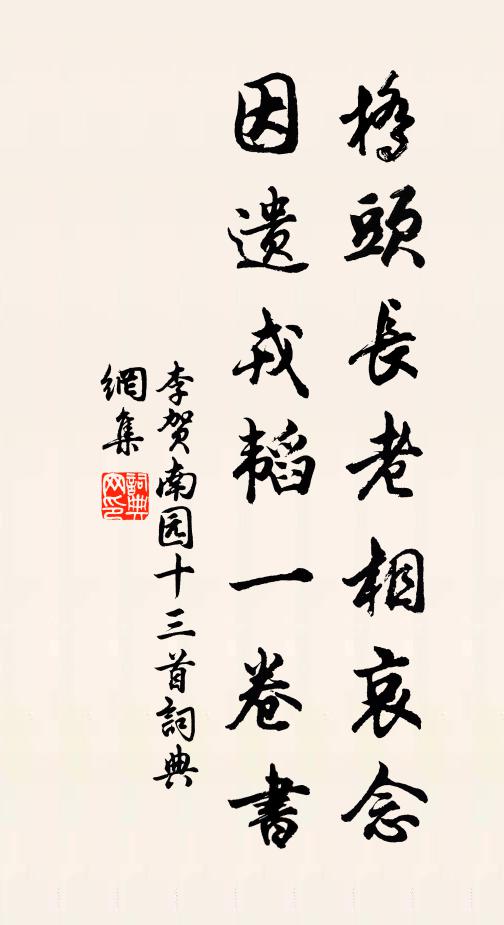 橋頭長老相哀念
因遺戎韬一卷書
李贺南园十三首詞典
網集
詞典网印